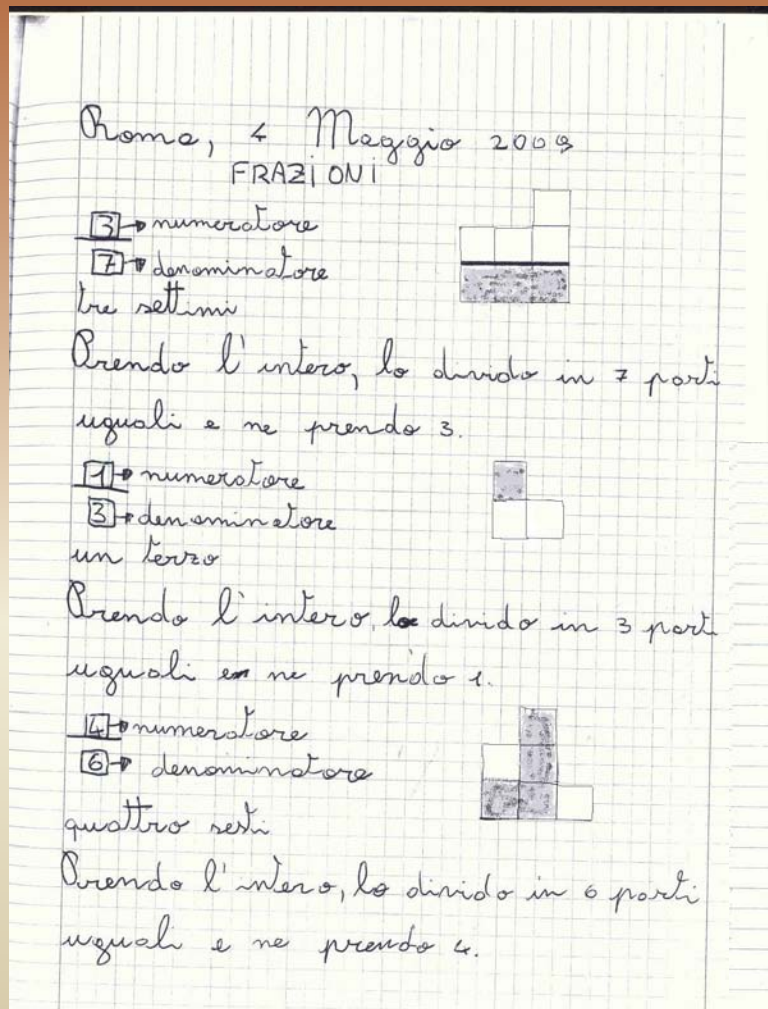 Roma, 4 Maggio 2009
FRAZIONI
3 → numeratore
7 → denominatore
tre settimi
Prendo l'intero, lo divido in 7 parti
uguali e ne prendo 3.
1 → numeratore
3 → denominatore
un terzo
Prendo l'intero, lo divido in 3 parti
uguali e ne prendo 1.
4 → numeratore
6 → denominatore
quattro sesti
Prendo l'intero, lo divido in 6 parti
uguali e ne prendo 4.